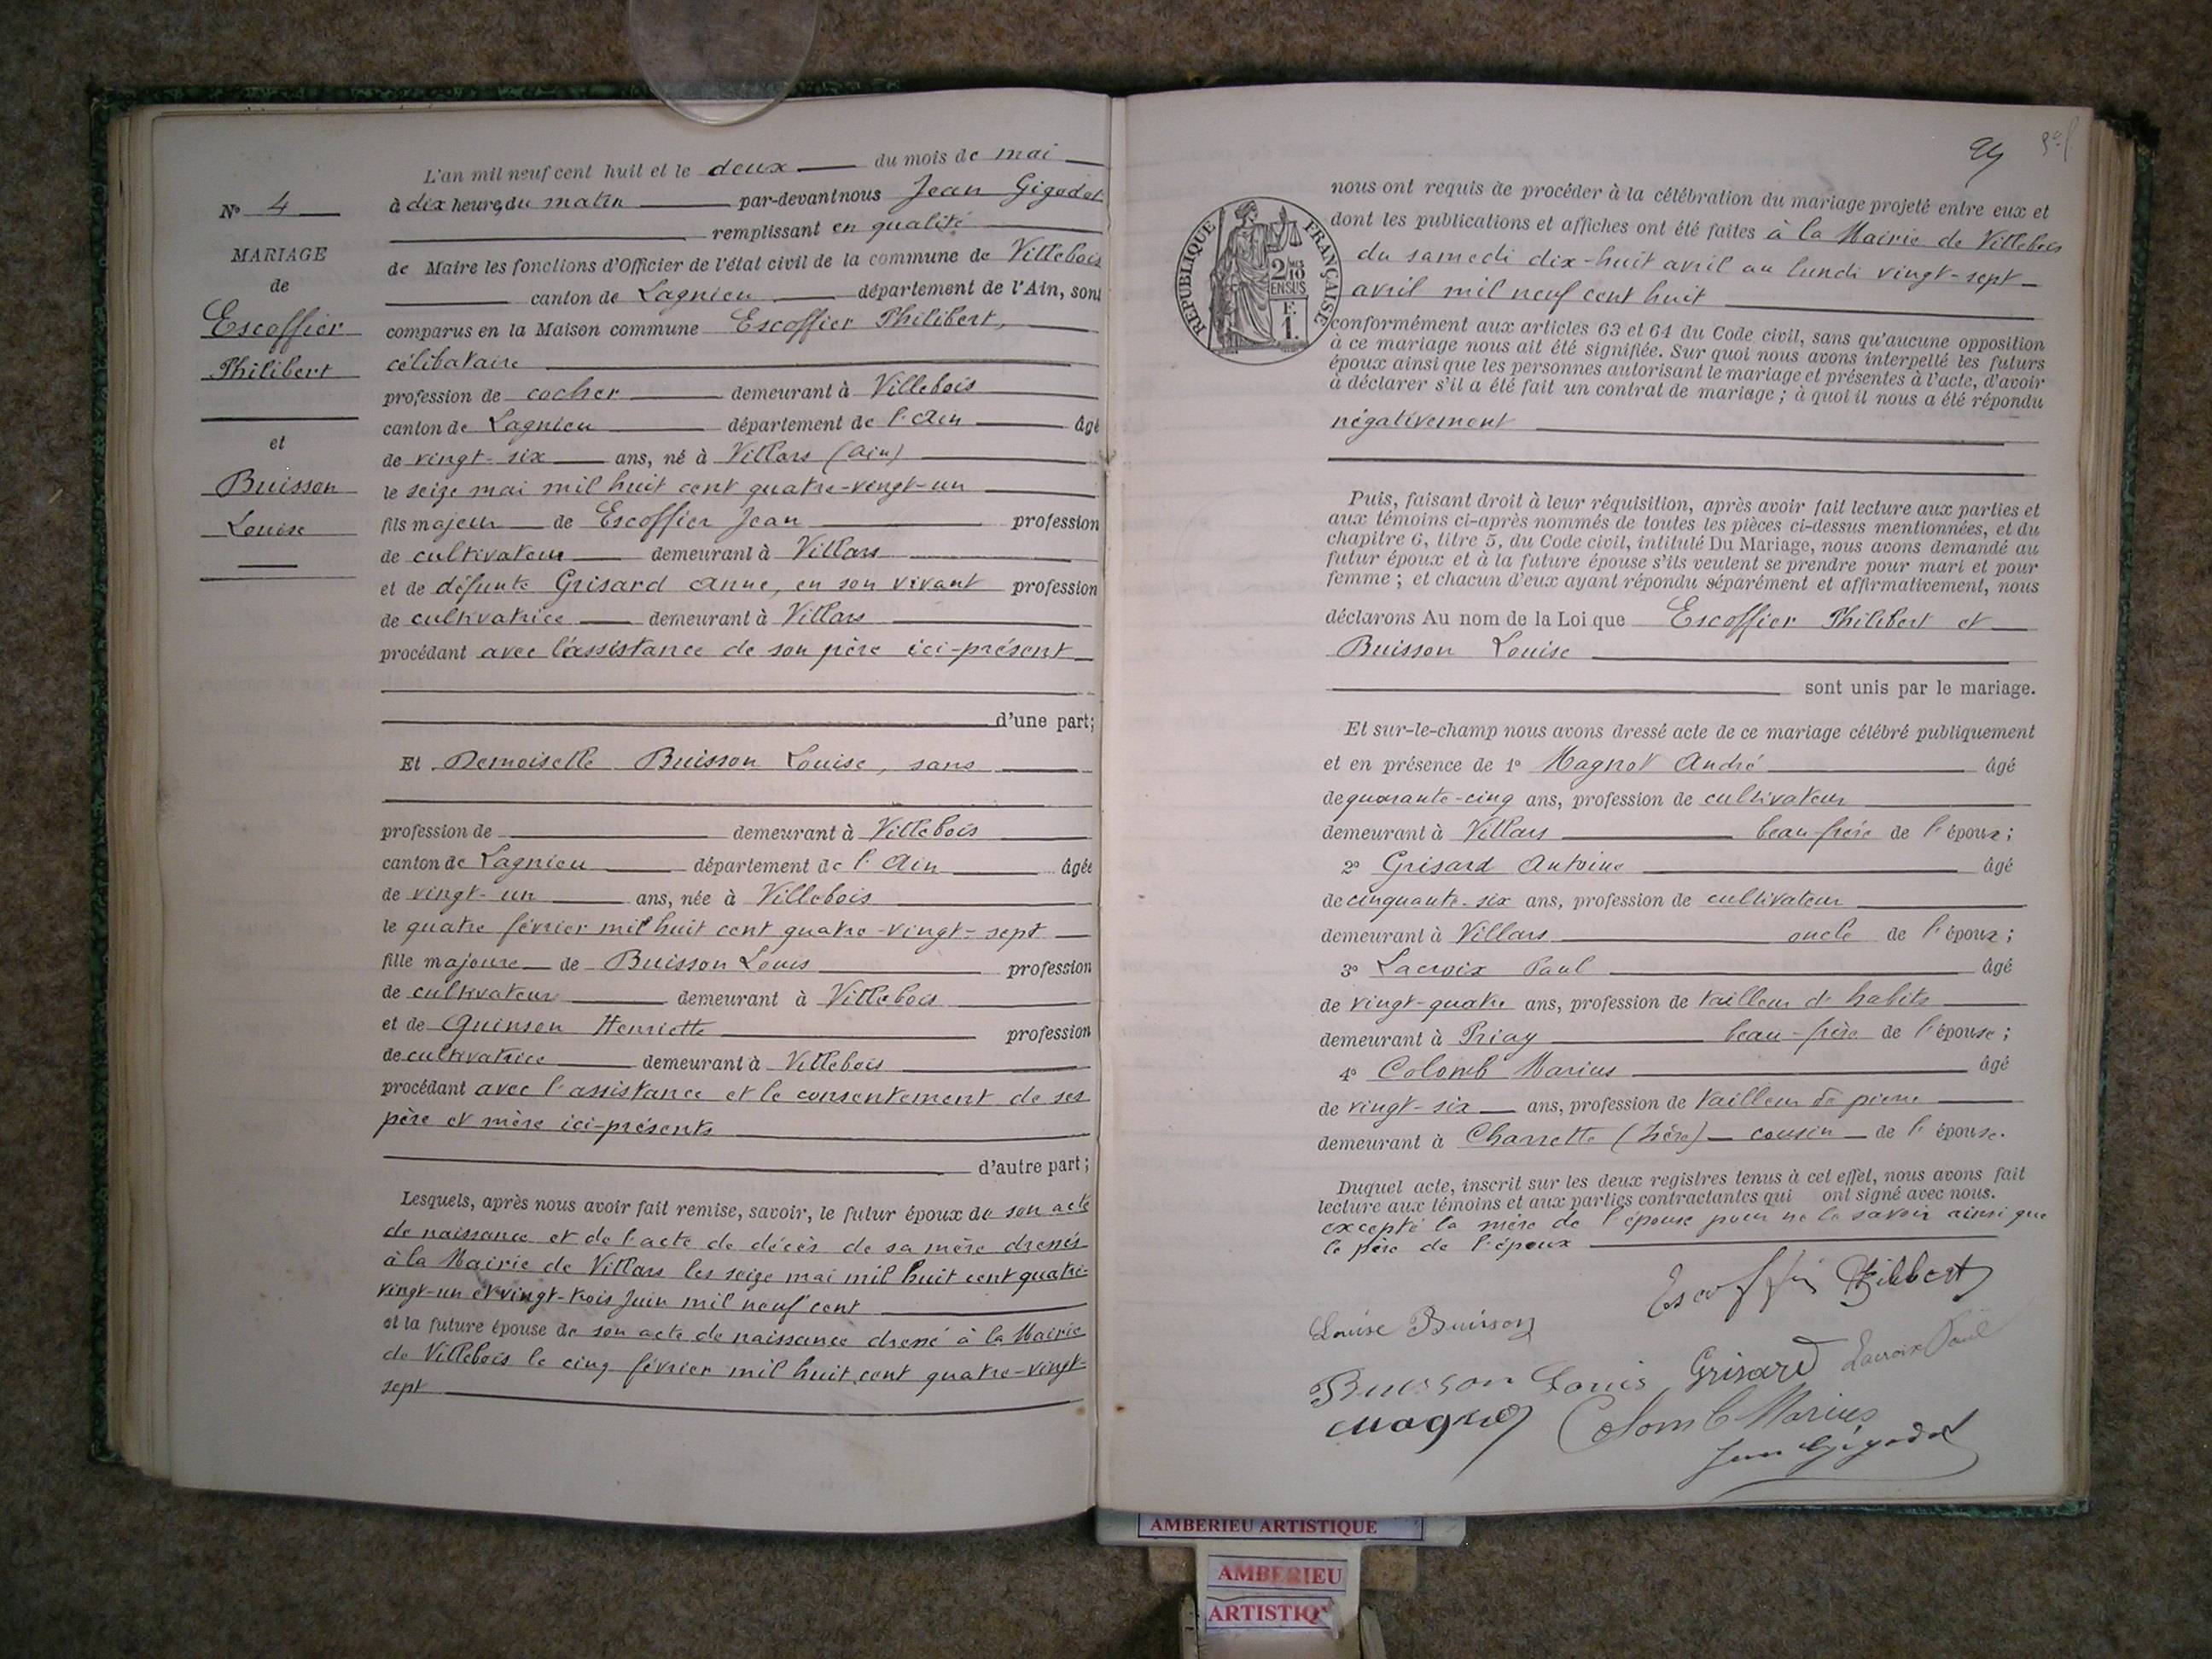 N° 4
MARIAGE
de
Escoffier
Philibert
et
Buisson
Louise
L'an mil neuf cent huit et le deux du mois de mai
à dix heures du matin par-devant nous Jean Gigodot
remplissant en qualité
de Maire les fonctions d'Officier de l'état civil de la commune de Villebois
canton de Lagnieu département de l'Ain, sont
comparus en la Maison commune Escoffier Philibert,
célibataire
profession de cocher demeurant à Villebois
canton de Lagnieu département de l'Ain âgé
de vingt-six ans, né à Villars (Ain)
le seize mai mil huit cent quatre-vingt-un
fils majeur de Escoffier Jean profession
de cultivateur demeurant à Villars
et de défunte Grisard Anne, en son vivant profession
de cultivatrice demeurant à Villars
procédant avec l'assistance de son père ici-présent
d'une part;
Et Demoiselle Buisson Louise, sans
profession de demeurant à Villebois
canton de Lagnieu département de l'Ain âgée
de vingt-un ans, née à Villebois
le quatre février mil huit cent quatre-vingt-sept
fille majeure de Buisson Louis profession
de cultivateur demeurant à Villebois
et de Quinson Henriette profession
de cultivatrice demeurant à Villebois
procédant avec l'assistance et le consentement de ses
père et mère ici-présents
d'autre part;
Lesquels, après nous avoir fait remise, savoir, le futur époux de son acte
de naissance et de l'acte de décès de sa mère dressés
à la Mairie de Villars les seize mai mil huit cent quatre-
vingt-un et vingt-trois juin mil neuf cent
et la future épouse de son acte de naissance dressé à la Mairie
de Villebois le cinq février mil huit cent quatre-vingt-
sept
nous ont requis de procéder à la célébration du mariage projeté entre eux et
dont les publications et affiches ont été faites à la Mairie de Villebois
du samedi dix-huit avril au lundi vingt-sept
avril mil neuf cent huit
REPUBLIQUE FRANÇAISE
2/10
EN SUS
F.
1.
conformément aux articles 63 et 64 du Code civil, sans qu'aucune opposition
à ce mariage nous ait été signifiée. Sur quoi nous avons interpellé les futurs
époux ainsi que les personnes autorisant le mariage et présentes à l'acte, d'avoir
à déclarer s'il a été fait un contrat de mariage; à quoi il nous a été répondu
négativement
Puis, faisant droit à leur réquisition, après avoir fait lecture aux parties et
aux témoins ci-après nommés de toutes les pièces ci-dessus mentionnées, et du
chapitre 6, titre 5, du Code civil, intitulé Du Mariage, nous avons demandé au
futur époux et à la future épouse s'ils veulent se prendre pour mari et pour
femme; et chacun d'eux ayant répondu séparément et affirmativement, nous
déclarons Au nom de la Loi que Escoffier Philibert et
Buisson Louise
sont unis par le mariage.
Et sur-le-champ nous avons dressé acte de ce mariage célébré publiquement
et en présence de 1° Magnot André âgé
de quarante-cinq ans, profession de cultivateur
demeurant à Villars beau-frère de l'époux;
2° Grisard Antoine âgé
de cinquante-six ans, profession de cultivateur
demeurant à Villars oncle de l'époux;
3° Lacroix Paul âgé
de vingt-quatre ans, profession de tailleur d'habits
demeurant à Priay beau-frère de l'épouse;
4° Colomb Marius âgé
de vingt-six ans, profession de tailleur de pierre
demeurant à Charrette (Isère) cousin de l'épouse.
Duquel acte, inscrit sur les deux registres tenus à cet effet, nous avons fait
lecture aux témoins et aux parties contractantes qui ont signé avec nous.
excepté la mère de l'épouse pour ne le savoir ainsi que
le père de l'époux
Escoffier Philibert
Louise Buisson
Buisson Louis Grisard Lacroix Paul
Magnot Colomb Marius
Jean Gigodot
AMBERIEU ARTISTIQUE
AMBERIEU
ARTISTIQ